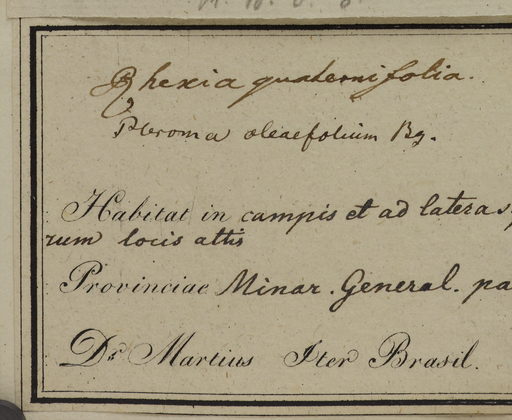 Rhexia quaternifolia.
Pleroma oleaefolium Bg.
Habitat in campis et ad latera
rum locis altis
Provinciae Minar. General. pa
Dr. Martius Iter Brasil.